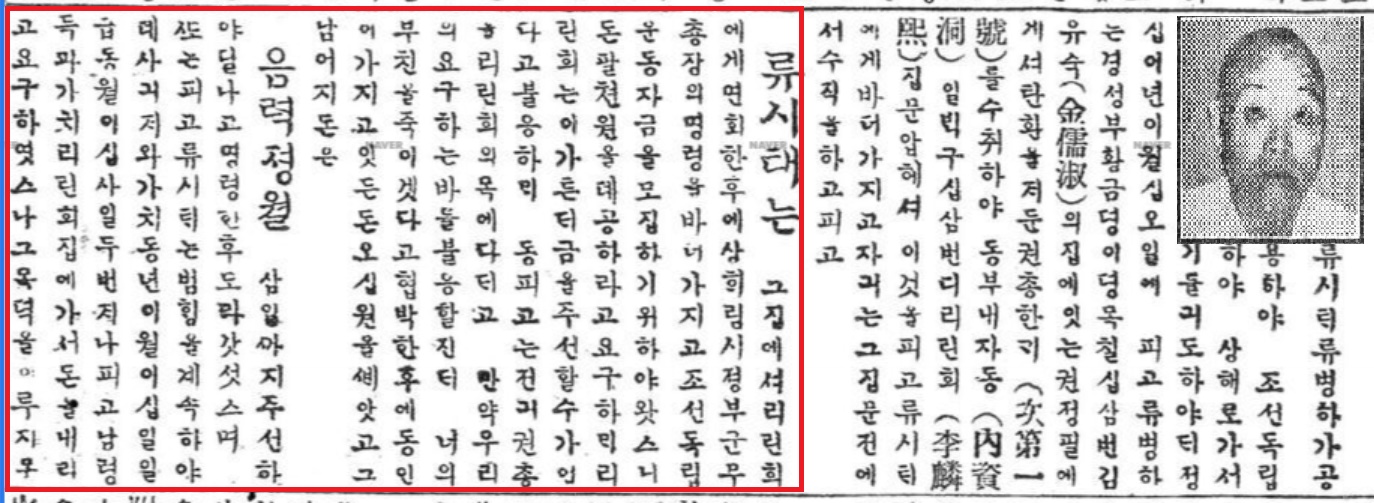 류시태류병하가공
용하야 조선독립
하야 상해로가서
기들긔도하야뎌정
십어년이월십오일에 피고류병하
는경성부황금뎡이뎡목칠십삼번김
유숙(金儒淑)의집에잇는권정필에
게셔탄환을저둔권총한긔(次第一
號)를수취하야 동부내자동(內資
洞)일빅구십삼번디리린회(李麟
熙)집문압헤셔 이것을피고류시태
에게바더가지고자긔는그집문전에
서수직을하고피고
류시태는 그집에셔리린희
에게면회한후에상희림시정부군무
총장의명령을바더가지고조선독립
운동자금을모집하기위하야왓스니
돈팔천원을뎨공하라고요구하믹리
린희는이가튼더금을주선할수가업
다고불응하믹 동피고는전긔권총
을리린회의목에다더고 만약우리
의요구하는바를불응할진터 너의
부친을죽이겟다고협박한후에동인
이가지고잇든돈오십원을쎄앗고그
남어지돈은
음력정월 삼일까지주선하
야달나고명령한후도라갓섯스며
또는피고류시태는범힝을계속하야
뎨사긔저와가치동년이월이십일일
급동월이십사일두번저나피고남령
득과가치리린회집에가서돈을내리
고요구하엿스나그목덕을이루지못